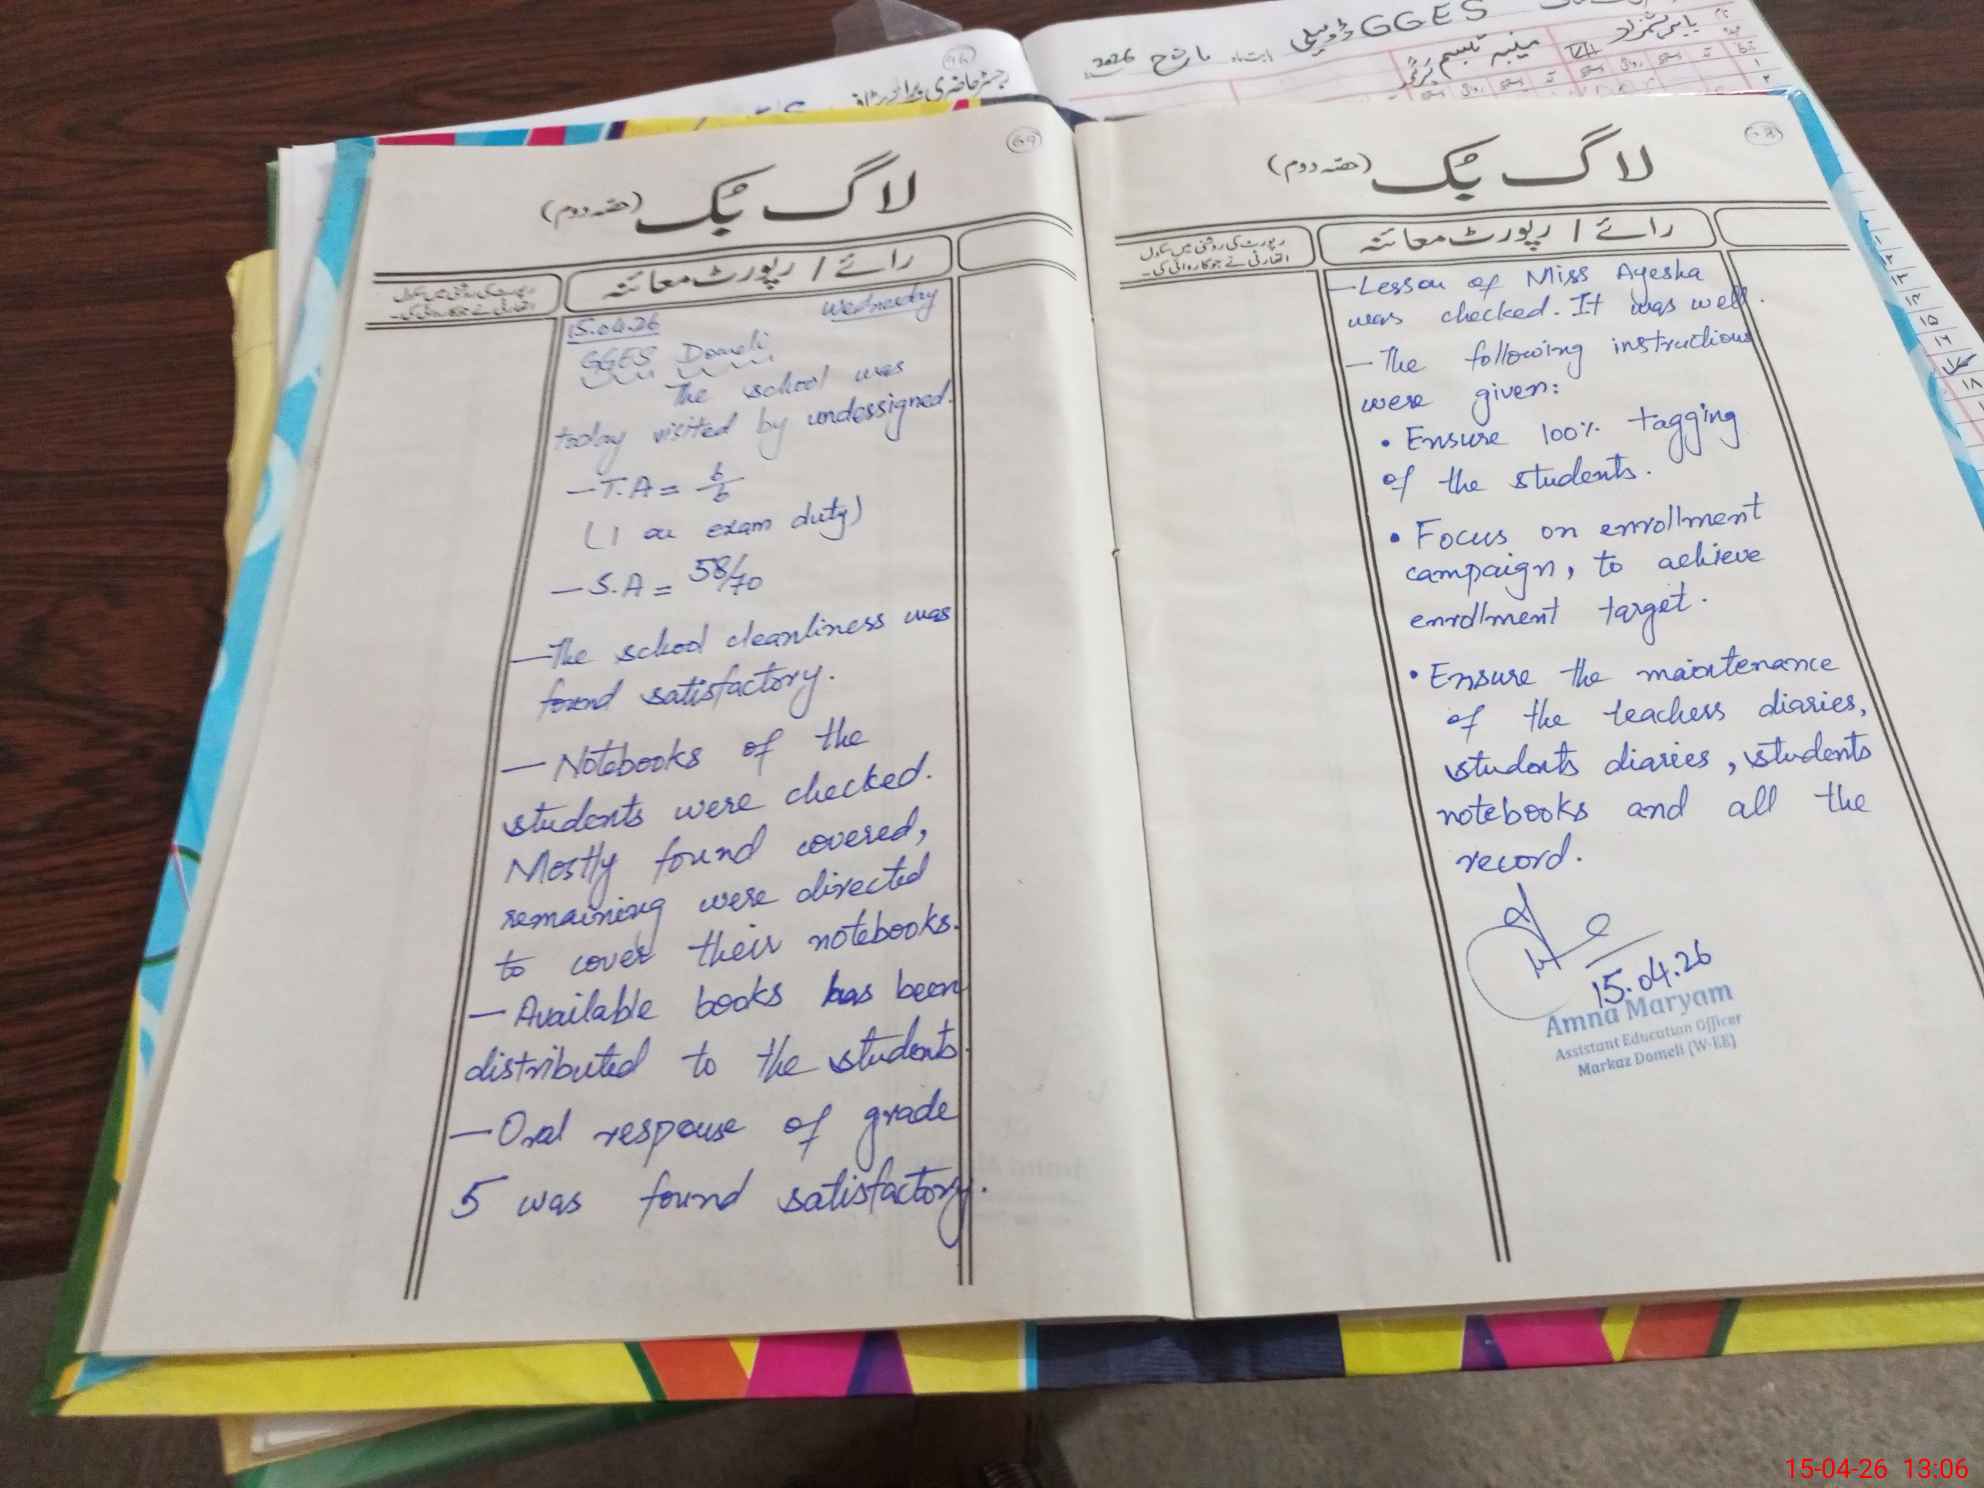 GGES ڈومیلی
بابت ماہ مارچ 2026
رجسٹر حاضری
69
لاگ بُک (حصہ دوم)
رپورٹ کی روشنی میں سکول
اتھارٹی نے جو کاروائی کی۔
رائے / رپورٹ معائنہ
15.04.26 Wednesday
GGES Domeli
The school was
today visited by undersigned.
— T.A = 6/6
(1 on exam duty)
— S.A = 58/70
— The school cleanliness was
found satisfactory.
— Notebooks of the
students were checked.
Mostly found covered,
remaining were directed
to cover their notebooks.
— Available books has been
distributed to the students.
— Oral response of grade
5 was found satisfactory.
لاگ بُک (حصہ دوم)
رپورٹ کی روشنی میں سکول
اتھارٹی نے جو کاروائی کی۔
رائے / رپورٹ معائنہ
— Lesson of Miss Ayesha
was checked. It was well.
— The following instructions
were given:
• Ensure 100% tagging
of the students.
• Focus on enrollment
campaign, to achieve
enrollment target.
• Ensure the maintenance
of the teachers diaries,
students diaries, students
notebooks and all the
record.
15.04.26
Amna Maryam
Assistant Education Officer
Markaz Domeli (W-EE)
15-04-26 13:06